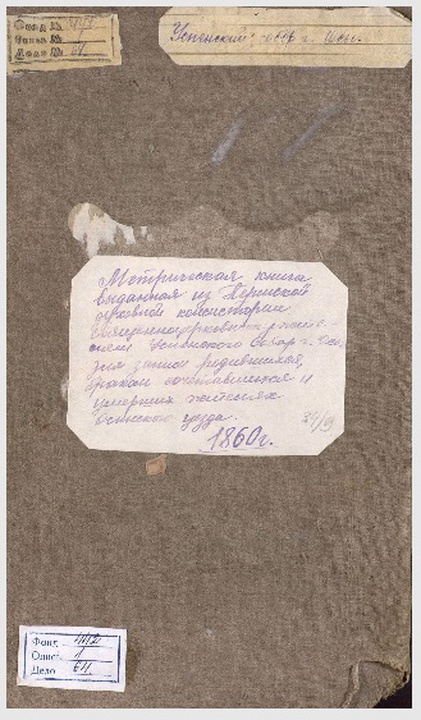 Фонд №
Опись №
Дело № 64
Успенский собор г. Осы.
Метрическая книга
выданная из Пермской
духовной консистории
священноцерковнослужите-
лям Успенского собор г. Осы
для записи родившихся,
браком сочетавшихся и
умерших жителях
Осинского уезда.
34/9
1860г.
Фонд 442
Опись 1
Дело 64